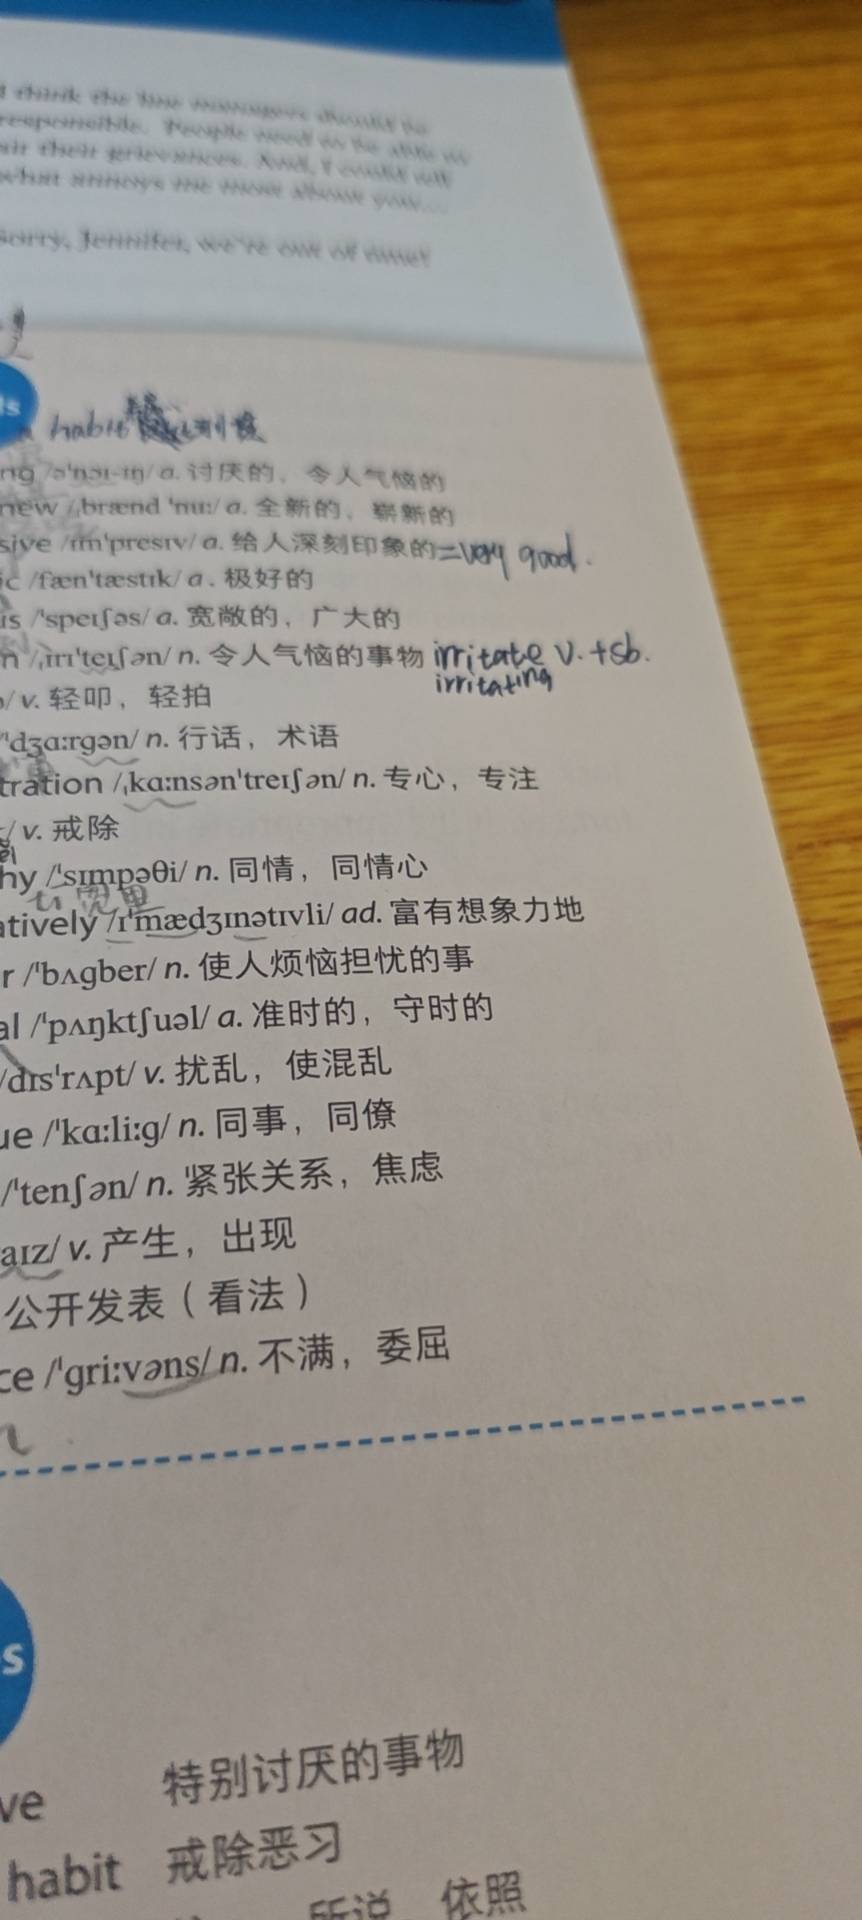 I think the line managers should be
responsible. People need to be able to
air their grievances. And, I could tell
what annoys me most about you...
Sorry, Jennifer, we're out of time!
ls
habit
ng /ə'nɔɪ-ɪŋ/ a. 讨厌的，令人气恼的
new /ˌbrænd 'nuː/ a. 全新的，崭新的
sive /ɪm'presɪv/ a. 给人深刻印象的 = very good.
ic /fæn'tæstɪk/ a. 极好的
us /'speɪʃəs/ a. 宽敞的，广大的
n /ˌɪrɪ'teɪʃən/ n. 令人气恼的事物 irritate v. + sb.
irritating
/ v. 轻叩，轻拍
/'dʒɑːrgən/ n. 行话，术语
tration /ˌkɑːnsən'treɪʃən/ n. 专心，专注
/ v. 戒除
hy /'sɪmpəθi/ n. 同情，同情心
atively /ɪ'mædʒɪnətɪvli/ ad. 富有想象力地
r /'bʌgber/ n. 使人烦恼担忧的事
al /'pʌŋktʃuəl/ a. 准时的，守时的
/dɪs'rʌpt/ v. 扰乱，使混乱
ue /'kɑːliːg/ n. 同事，同僚
/'tenʃən/ n. 紧张关系，焦虑
aɪz/ v. 产生，出现
公开发表（看法）
ce /'griːvəns/ n. 不满，委屈
s
ve 特别讨厌的事物
habit 戒除恶习
所说 依照